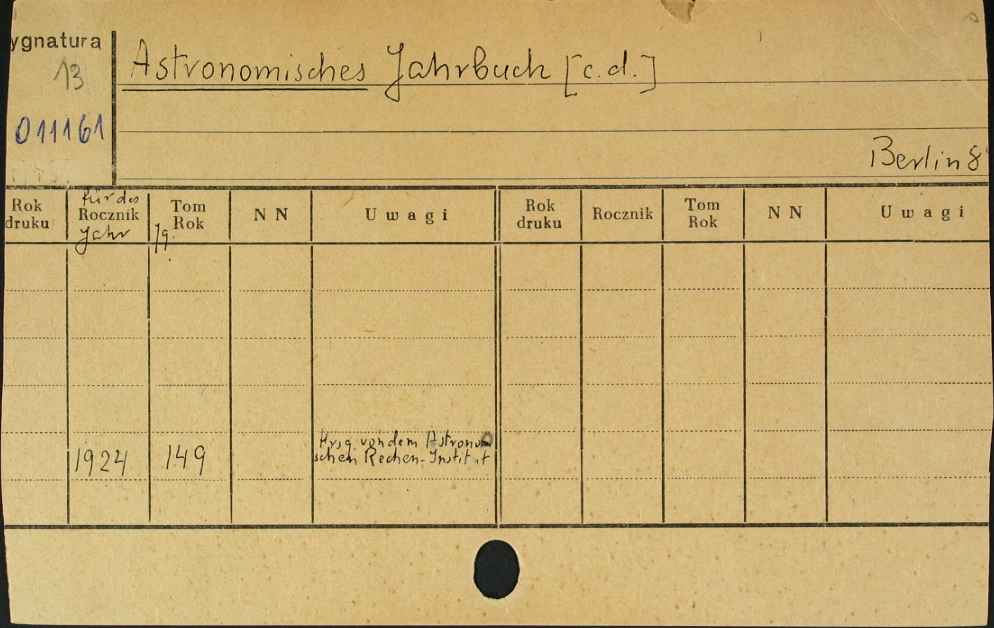 ygnatura
13
011161
Astronomisches Jahrbuch [c.d.]
Berlin 8°
Rok druku
für das Rocznik Jahr
Tom Rok Jg.
N N
Uwagi
Rok druku
Rocznik
Tom Rok
N N
Uwagi
1924 149 Hrsg. von dem Astronomi
schen Rechen-Institut